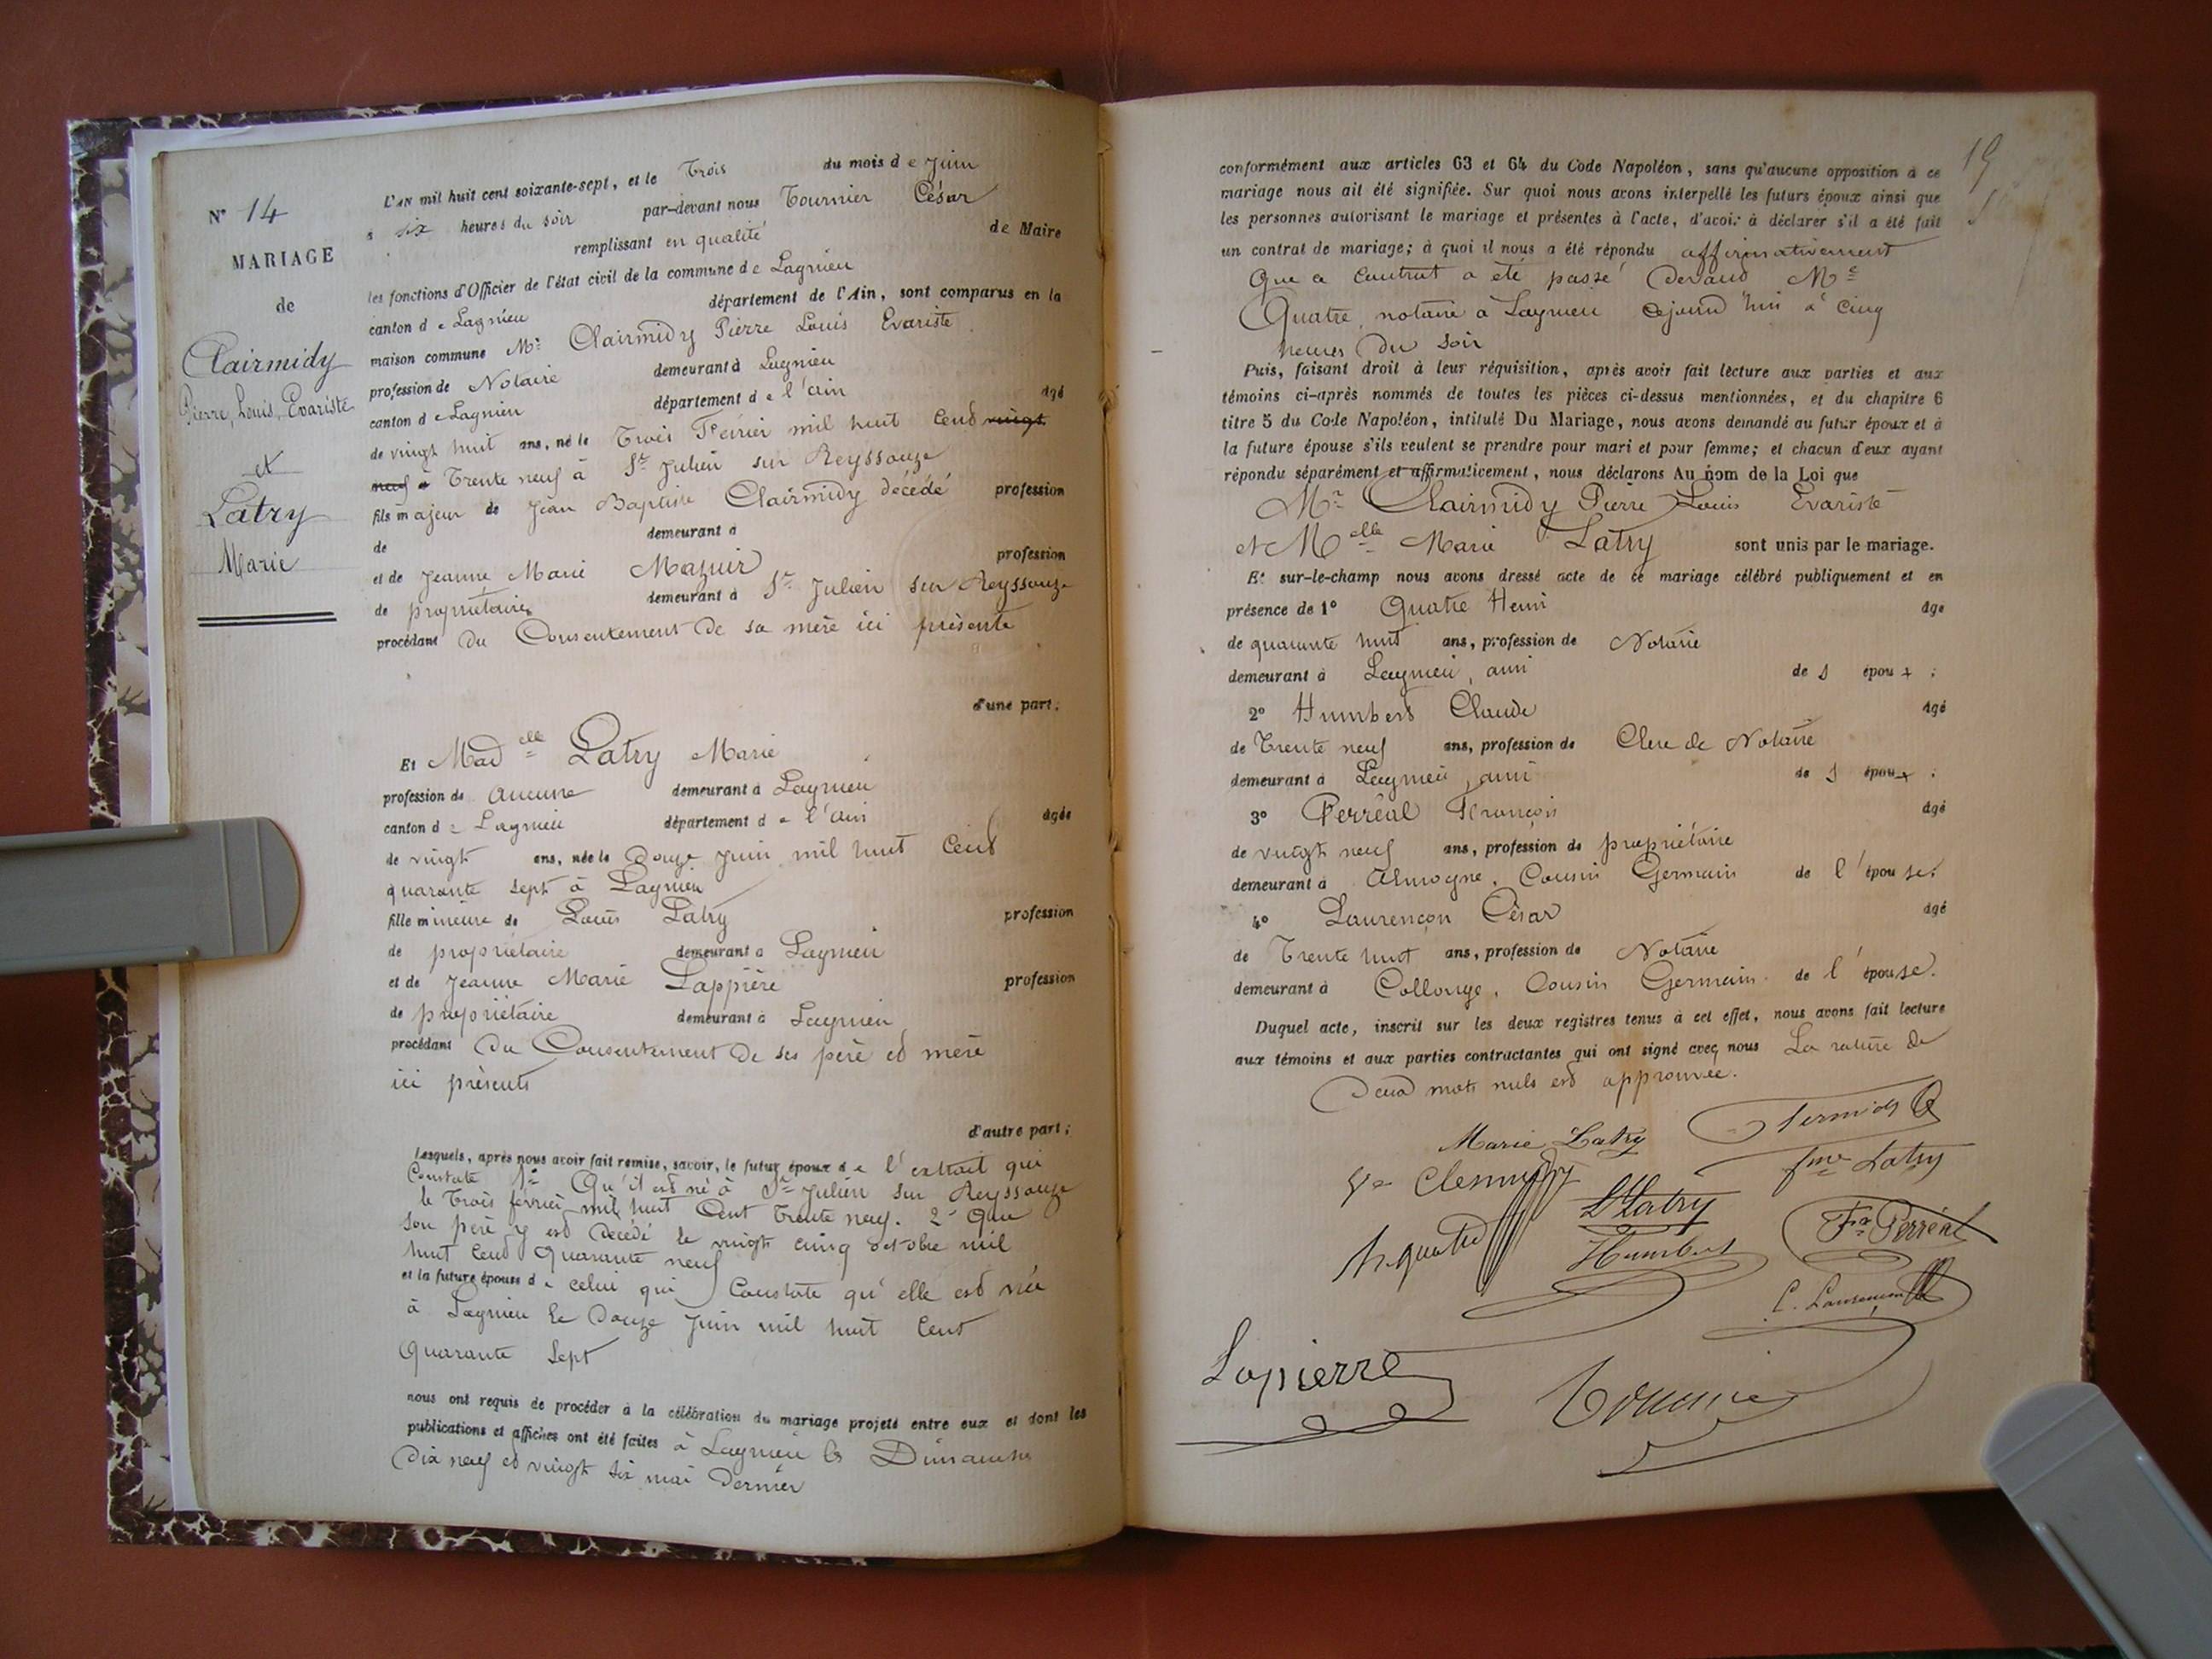 N° 14
MARIAGE
de
Clairmidy
Pierre, Louis, Evariste
et
Latry
Marie
L'AN mil huit cent soixante-sept, et le Trois du mois de Juin
à six heures du soir par-devant nous Tournier César
remplissant en qualité de Maire
les fonctions d'Officier de l'état civil de la commune de Lagnieu
canton de Lagnieu département de l'Ain, sont comparus en la
maison commune Mr Clairmidy Pierre Louis Evariste
profession de Notaire demeurant à Lagnieu
canton de Lagnieu département de l'ain âgé
de vingt huit ans, né le Trois Février mil huit Cent vingt
neuf Trente neuf à St Julien sur Reyssouze
fils majeur de Jean Baptiste Clairmidy décédé profession
de demeurant à
et de Jeanne Marie Mazuir profession
de propriétaire demeurant à St Julien sur Reyssouze
procédant du Consentement de sa mère ici présente
d'une part;
Et Madelle Latry Marie
profession de aucune demeurant à Lagnieu
canton de Lagnieu département de l'ain âgée
de vingt ans, née le Douze Juin mil huit Cent
quarante sept à Lagnieu
fille mineure de Louis Latry profession
de propriétaire demeurant à Lagnieu
et de Jeanne Marie Lappière profession
de propriétaire demeurant à Lagnieu
procédant du Consentement de ses père et mère
ici présents
d'autre part;
Lesquels, après nous avoir fait remise, savoir, le futur époux de l'extrait qui
Constate 1° Qu'il est né à St Julien sur Reyssouze
le Trois février mil huit Cent Trente neuf. 2° Que
son père y est Décédé le vingt cinq octobre mil
huit Cent Quarante neuf
et la future épouse de celui qui Constate qu'elle est née
à Lagnieu le Douze Juin mil huit Cent
Quarante Sept
nous ont requis de procéder à la célébration du mariage projeté entre eux et dont les
publications et affiches ont été faites à Lagnieu les Dimanches
Dix neuf et vingt six mai Dernier
19
conformément aux articles 63 et 64 du Code Napoléon, sans qu'aucune opposition à ce
mariage nous ait été signifiée. Sur quoi nous avons interpellé les futurs époux ainsi que
les personnes autorisant le mariage et présentes à l'acte, d'avoir à déclarer s'il a été fait
un contrat de mariage; à quoi il nous a été répondu affirmativement
Que ce Contrat a été passé Devant Me
Quatre, notaire à Lagnieu cejourd'hui à cinq
heures Du Soir
Puis, faisant droit à leur réquisition, après avoir fait lecture aux parties et aux
témoins ci-après nommés de toutes les pièces ci-dessus mentionnées, et du chapitre 6
titre 5 du Code Napoléon, intitulé Du Mariage, nous avons demandé au futur époux et à
la future épouse s'ils veulent se prendre pour mari et pour femme; et chacun d'eux ayant
répondu séparément et affirmativement, nous déclarons Au nom de la Loi que
Mr Clairmidy Pierre Louis Evariste
et Melle Marie Latry sont unis par le mariage.
Et sur-le-champ nous avons dressé acte de ce mariage célébré publiquement et en
présence de 1° Quatre Henri âgé
de quarante huit ans, profession de Notaire
demeurant à Lagnieu, ami des époux;
2° Humbert Claude âgé
de Trente neuf ans, profession de Clerc de Notaire
demeurant à Lagnieu, ami des époux;
3° Perréal François âgé
de vingt neuf ans, profession de propriétaire
demeurant à Cousin Germain de l'épouse.
4° Laurençon César âgé
de Trente huit ans, profession de Notaire
demeurant à Collonge, Cousin Germain de l'épouse.
Duquel acte, inscrit sur les deux registres tenus à cet effet, nous avons fait lecture
aux témoins et aux parties contractantes qui ont signé avec nous La rature de
Deux mots nuls est approuvée.
Marie Latry
fme Latry
L Latry
h. quatre
Humbert
Fs Perréal
Lapierre